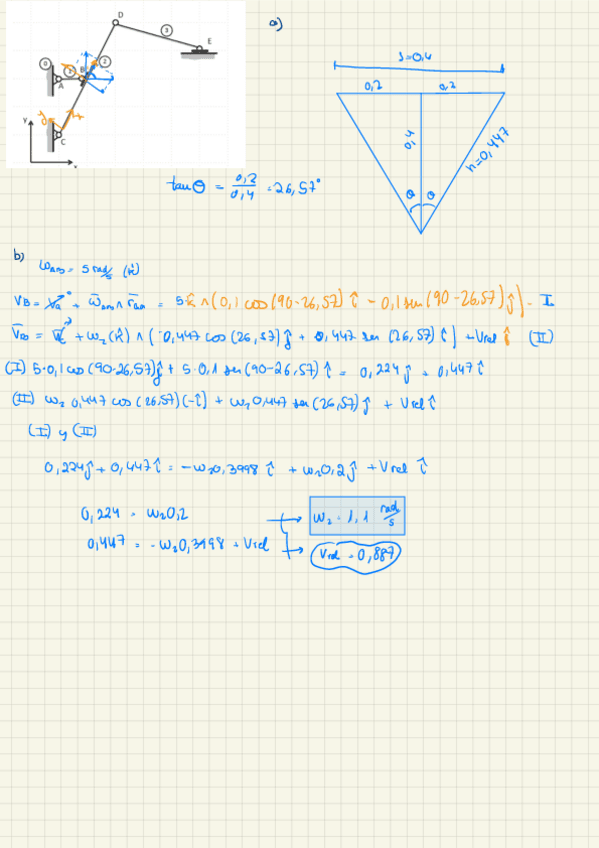 a)
D
3
E
0
1
B
2
A
C
y
x
s=0,4
0,2 0,2
0,4
h=0,447
θ θ
tan θ = 0,2/0,4 = 26,57°
b)
ω = 5 rad/s (k̂)
VB = + ω̄ ∧ r̄ = 5k̂ ∧ (0,1 cos(90-26,57) î - 0,1 sen(90-26,57) ĵ) - I
+ ω₂(k̂) ∧ (0,447 cos(26,57) ĵ + 0,447 sen(26,57) î) + Vrel î (II)
(I) 5·0,1 cos(90-26,57) ĵ + 5·0,1 sen(90-26,57) î = 0,224 ĵ + 0,447 î
(II) ω₂ 0,447 cos(26,57)(-î) + ω₂ 0,447 sen(26,57) ĵ + Vrel î
(I) y (II)
0,224 ĵ + 0,447 î = -ω₂0,3998 î + ω₂0,2 ĵ + Vrel î
0,224 = ω₂0,2
ω₂ = 1,1 rad/s
0,447 = -ω₂0,3998 + Vrel
Vrel = 0,887